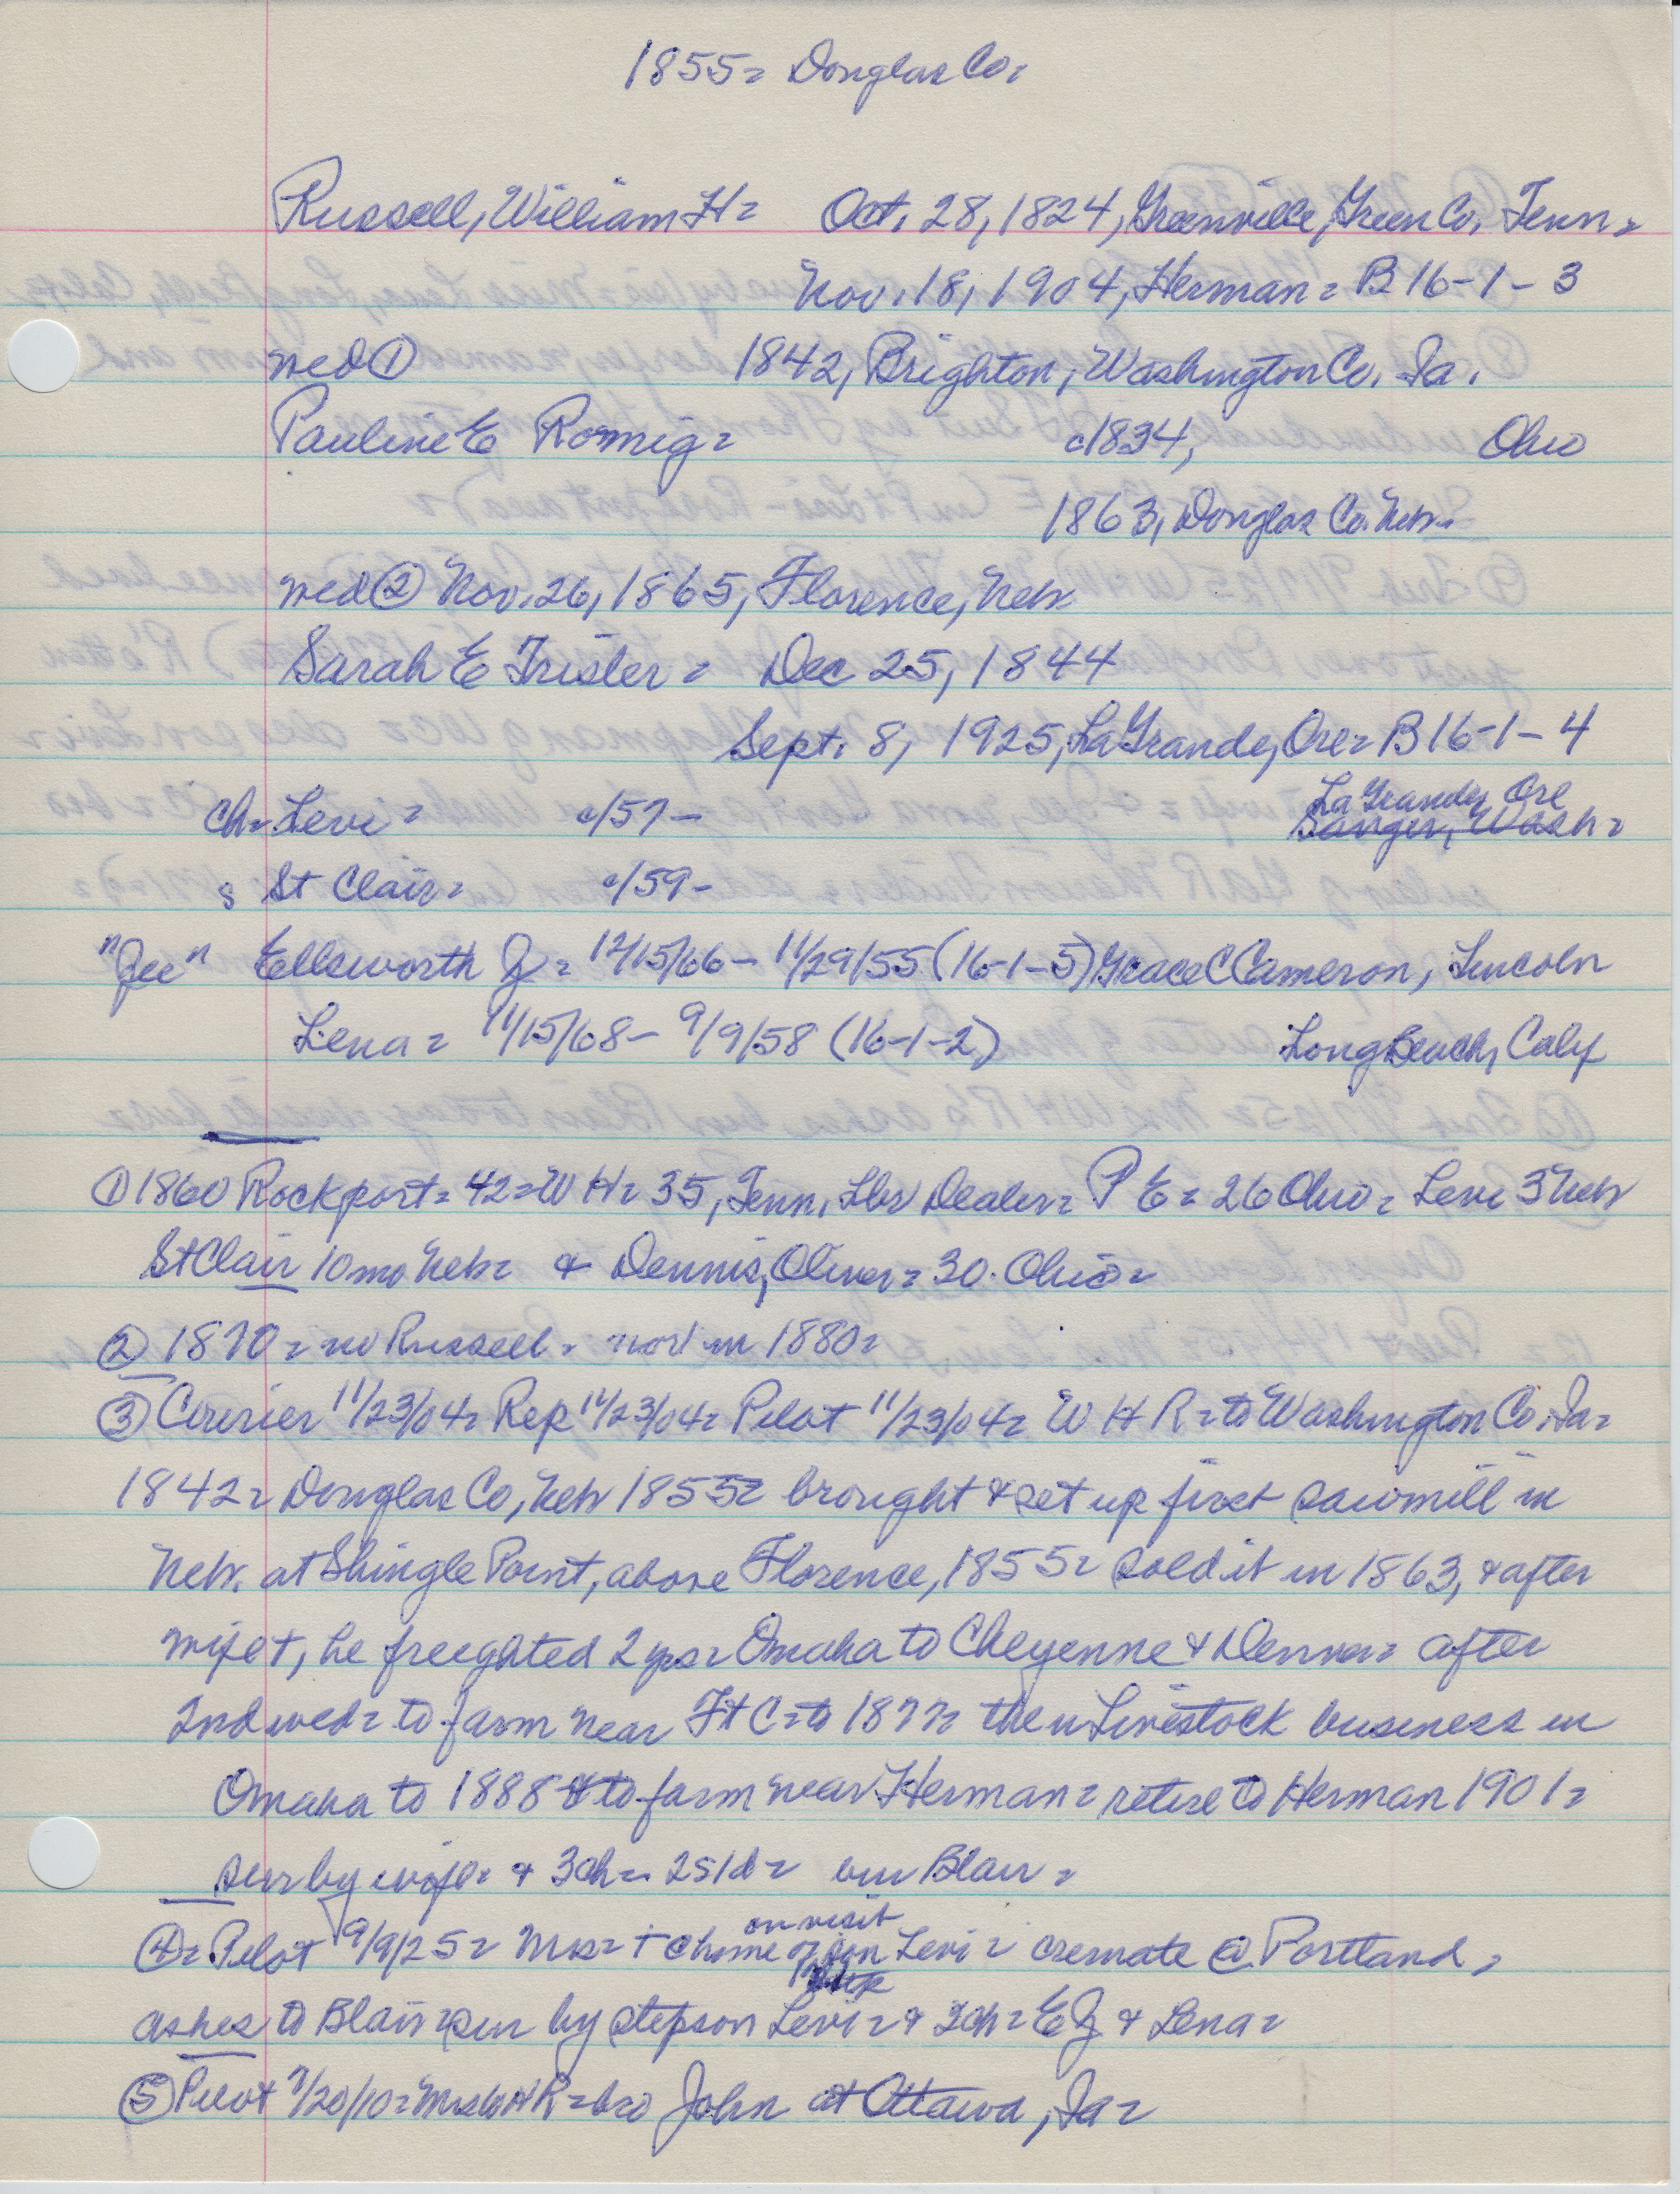 1855= Douglas Co=
Russell, William H= Oct. 28, 1824, Greenville, Green Co. Tenn=
Nov. 18, 1904, Herman= B 16-1-3
wed ① 1842, Brighton, Washington Co. Ia.
Pauline E Romig= c1834, Ohio
1863, Douglas Co. Nebr.
wed ② Nov. 26, 1865, Florence, Nebr
Sarah E Trisler= Dec 25, 1844
Sept. 8, 1925, LaGrande, Ore= B 16-1-4
La Grande, Ore
ch= Levi= c/57- Sanger, Wash=
s St Clair= c/59-
"Jee" Ellsworth J= 12/15/66- 11/29/55 (16-1-5) Grace C Cameron, Lincoln
Lena= 11/15/68- 9/9/58 (16-1-2) Long Beach, Calif
① 1860 Rockport= 42= W H= 35, Tenn, Lbr Dealer= P E= 26 Ohio= Levi 3 Nebr
St Clair 10 mo Nebr= & Dennis, Oliver= 30. Ohio=
② 1870= no Russell= nor in 1880=
③ Courier 11/23/04= Rep 11/23/04= Pilot 11/23/04= W H R= to Washington Co. Ia=
1842= Douglas Co, Nebr 1855= brought & set up first sawmill in
Nebr. at Shingle Point, above Florence, 1855= sold it in 1863, & after
wife †, he freighted 2 yrs= Omaha to Cheyenne & Denver= after
2nd wed= to farm near Ft C= to 1877= then Livestock business in
Omaha to 1888 & to farm near Herman= retire to Herman 1901=
sur by wife= & 3 ch= 2s 1d= bur Blair=
on visit
④= Pilot 9/9/25= Mrs= † @ home of son Levi= cremate @ Portland,
ashes to Blair= sur by stepson Levi= & 2 ch= E J & Lena=
⑤ Pilot 7/20/10= Mrs W H R= bro John at Ottawa, Ia=